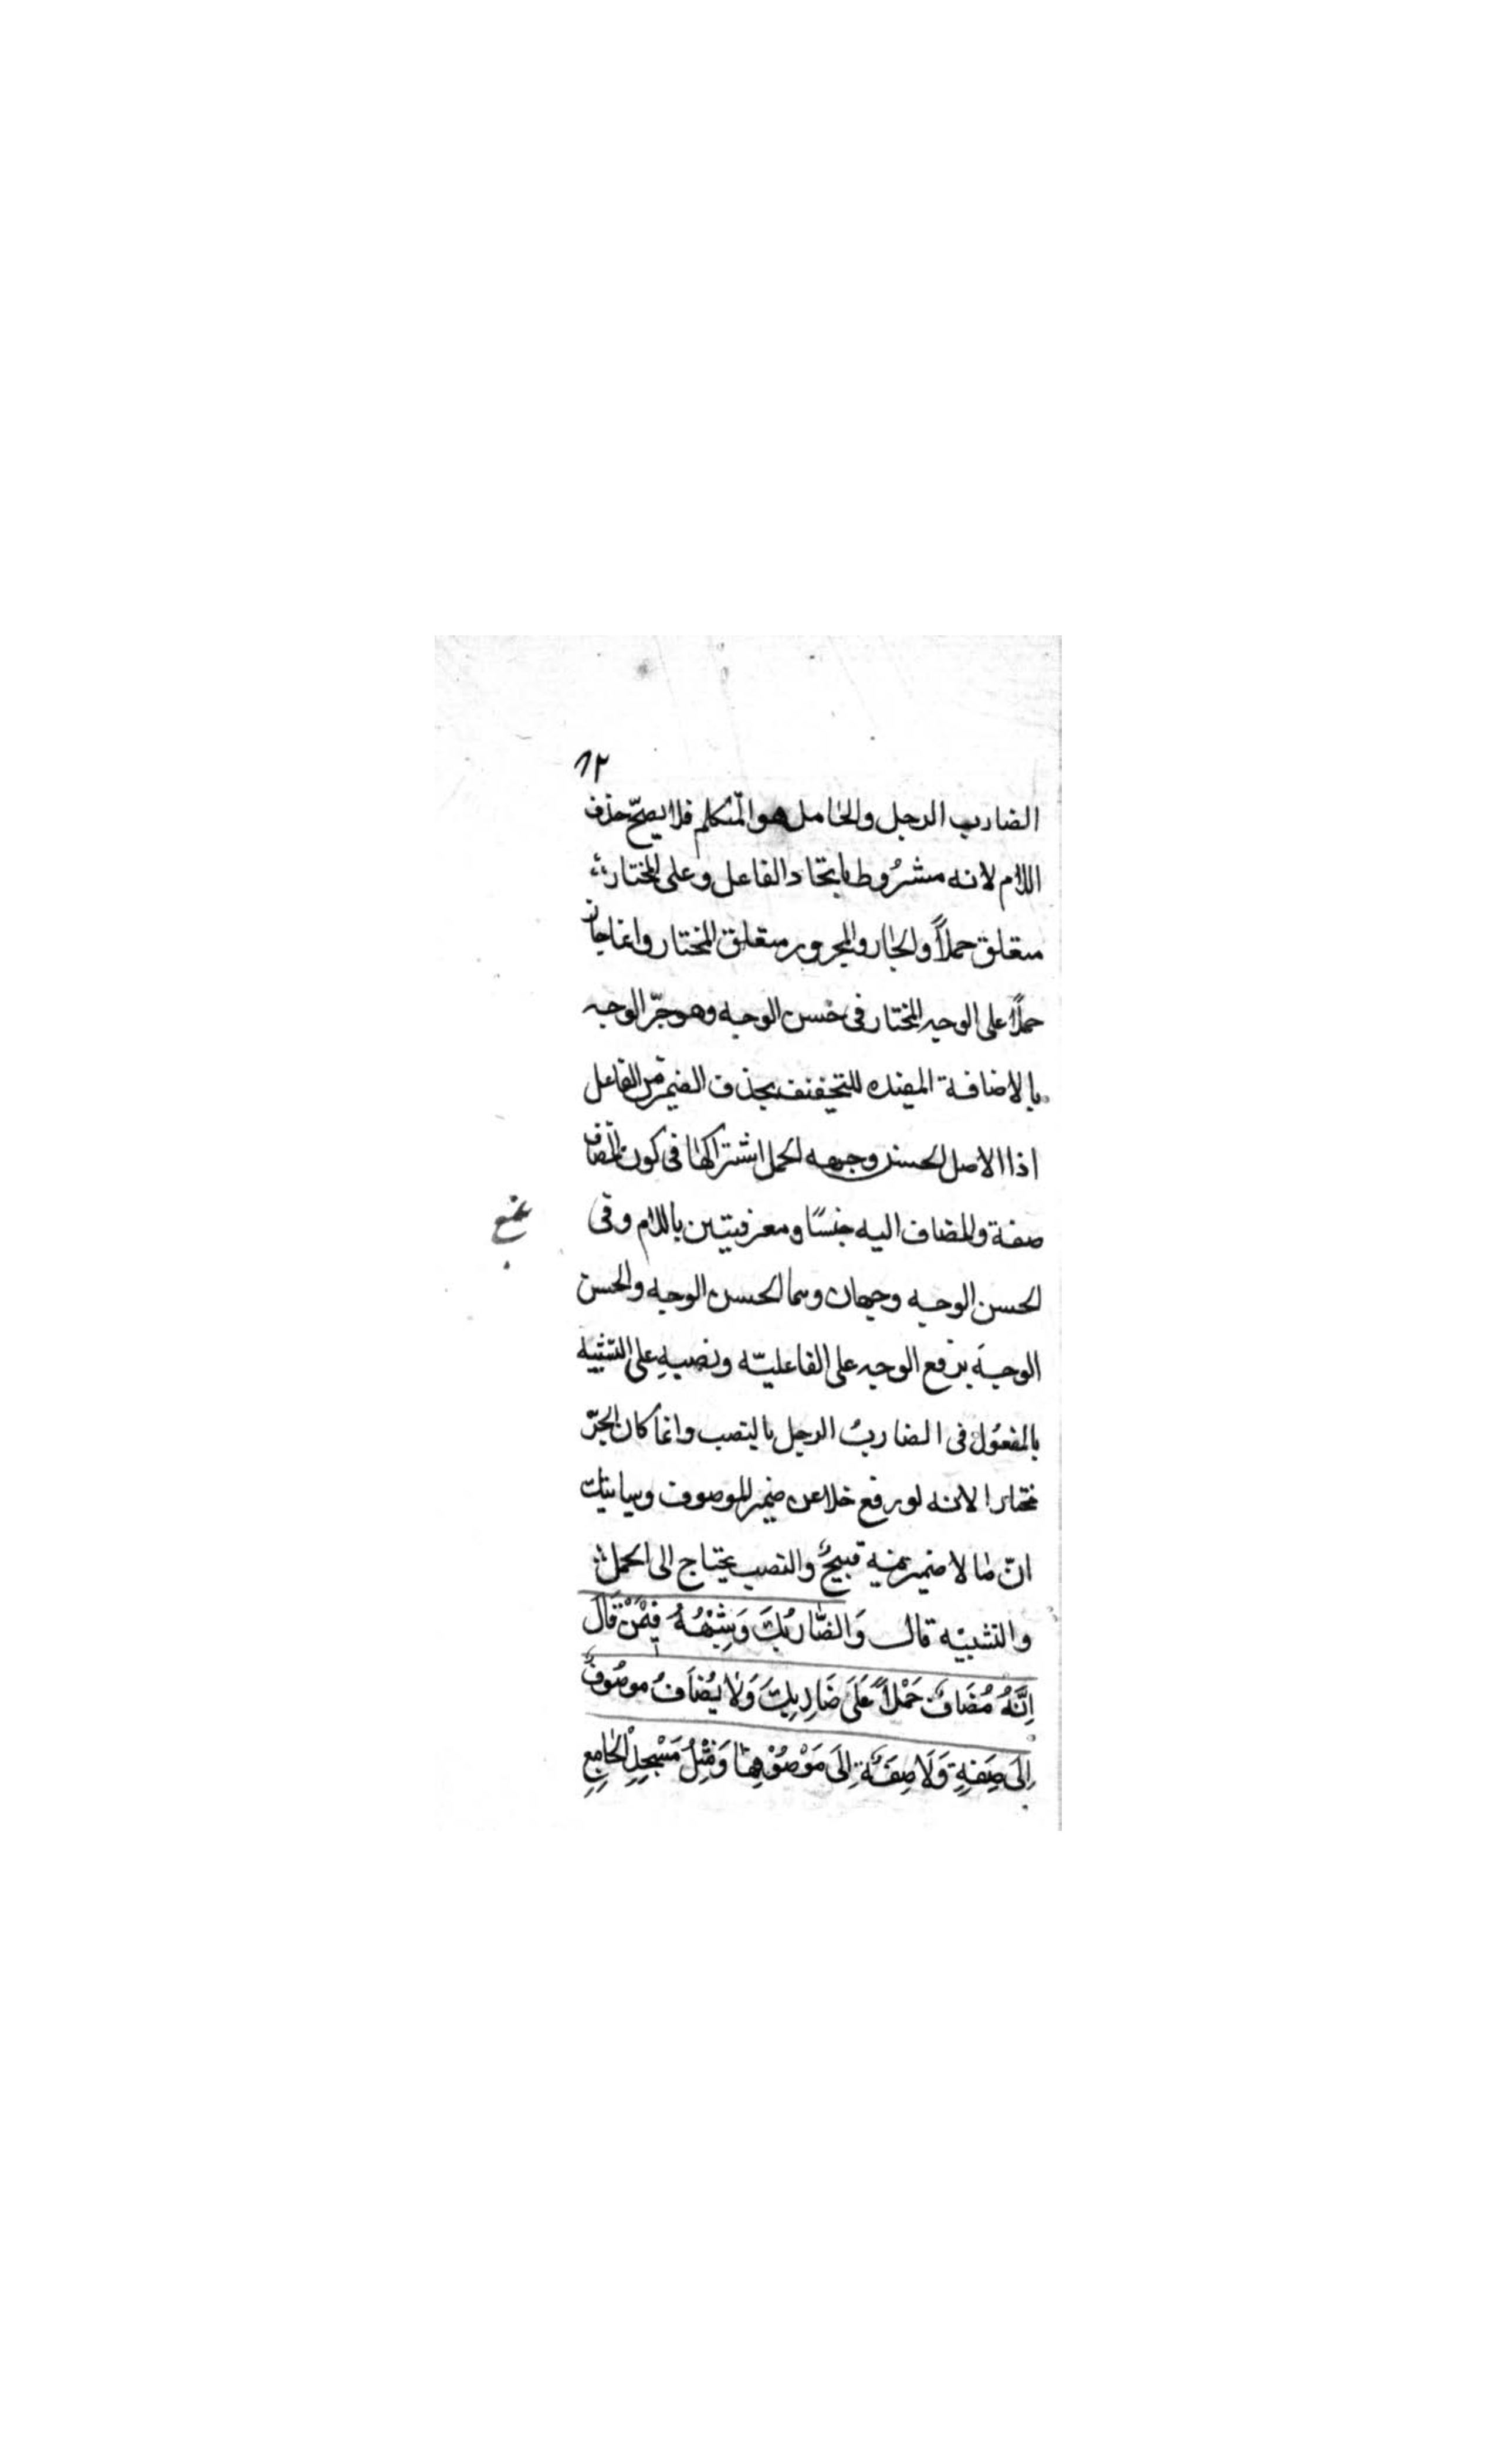 ١٢
الضارب الرجل والحامل هو المتكلم فلا يصحّ حذف
اللام لانه مشرُوط باتحاد الفاعل وعلى المختار
متعلق حملاً والجار والمجرور متعلق المختار وانما جاز
حملاً على الوجه المختار فى حسن الوجه وهو جرّ الوجه
بالاضافة المفيده للتخفيف بحذف الضمير من الفاعل
اذا الاصل الحسن وجهه لحمل اشتراكهما فى كون المضاف
صفة والمضاف اليه جنسًا ومعرفيتين باللام وفى
الحسن الوجه وجهان وهما الحسن الوجه والحسن
الوجهَ برفع الوجه على الفاعليّه ونصبهِ على التشبيه
بالمفعُول فى الضاربُ الرجل بالنصب وانما كان الجرّ
مختارا لانه لو رفع خلا عن ضمير الموصوف وسياتيك
انّ ما لا ضمير فيه قبيحٌ والنصب يحتاج الى الحمل
والتشبيه قال وَالضَّارِبُكَ وَشِبْهُهُ فِيْمَنْ قَالَ
اِنَّهُ مُضَافٌ حَمْلاً عَلَى ضَارِبِكَ وَلَا يُضَافُ موصُوفٌ
اِلَى صِفَةٍ وَلَا صِفَةٌ اِلَى مَوْصُوْفِهَا وَمِثْلُ مَسْجِدِ الْجَامِعِ